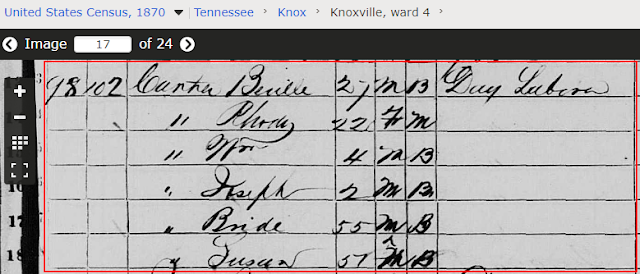 United States Census, 1870 Tennessee › Knox › Knoxville, ward 4 ›
Image 17 of 24
98 102 Beville 27 M B Day Laborer
" Rhody 22 F M
" Wm 4 M B
" Joseph 2 M B
17 " Bride 55 M B
18 " Susan 57 B